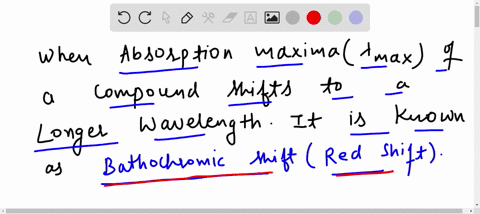 When Absorption maxima (λmax) of
a compound shifts to a
Longer Wavelength. It is Known
as Bathochromic shift (Red Shift).